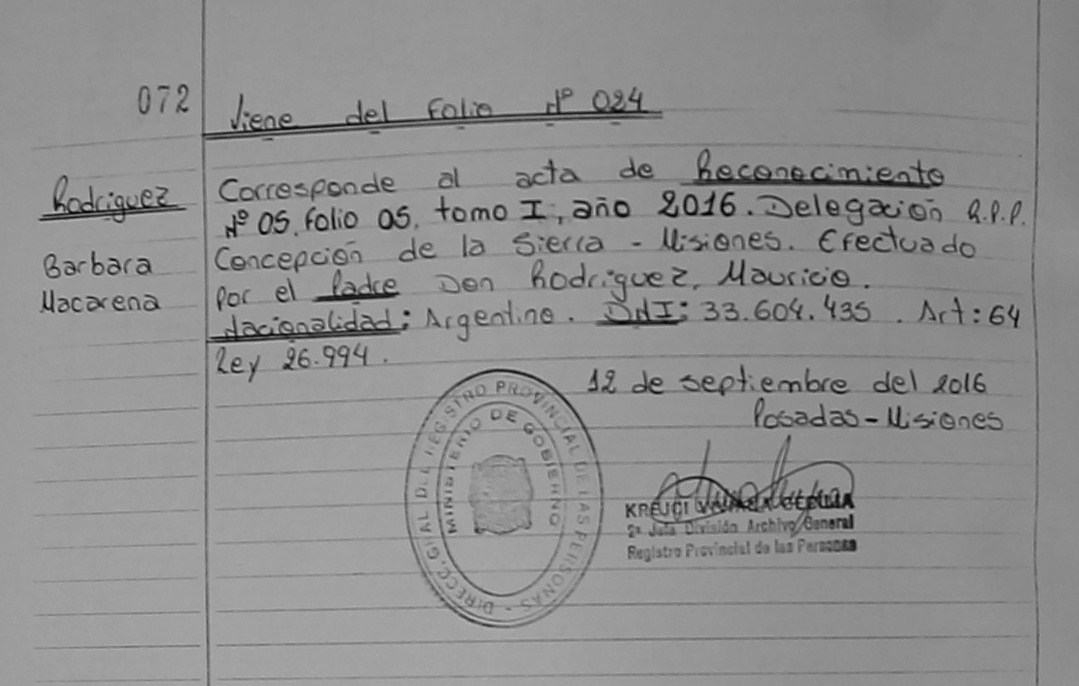 072
Viene del Folio Nº 024
Rodriguez
Barbara
Macarena
Corresponde al acta de Reconocimiento
Nº 05. Folio 05. tomo I, año 2016. Delegación R.P.P.
Concepción de la Sierra - Misiones. Efectuado
por el Padre Don Rodriguez, Mauricio.
Nacionalidad: Argentino. DNI: 33.604.435. Art: 64
Ley 26.994.
12 de septiembre del 2016
Posadas - Misiones
DIRECC. GRAL. DEL REGISTRO PROVINCIAL DE LAS PERSONAS -
MINISTERIO DE GOBIERNO
KREJCI
2º Jefa División Archivo General
Registro Provincial de las Personas